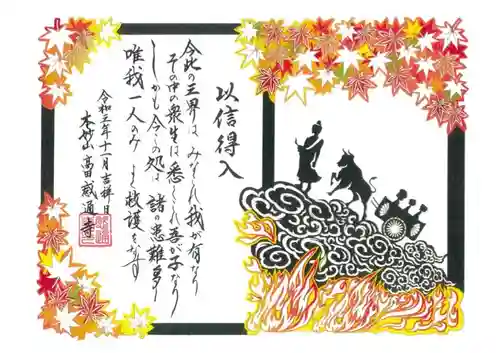 以信得入
今此の三界は みなこれ我が有なり
その中の衆生は 悉くこれ吾が子なり
しかも今この処は 諸の患難多し
唯我一人のみ よく救護をなす
令和元年十一月吉祥日
本妙山 高田 感通寺